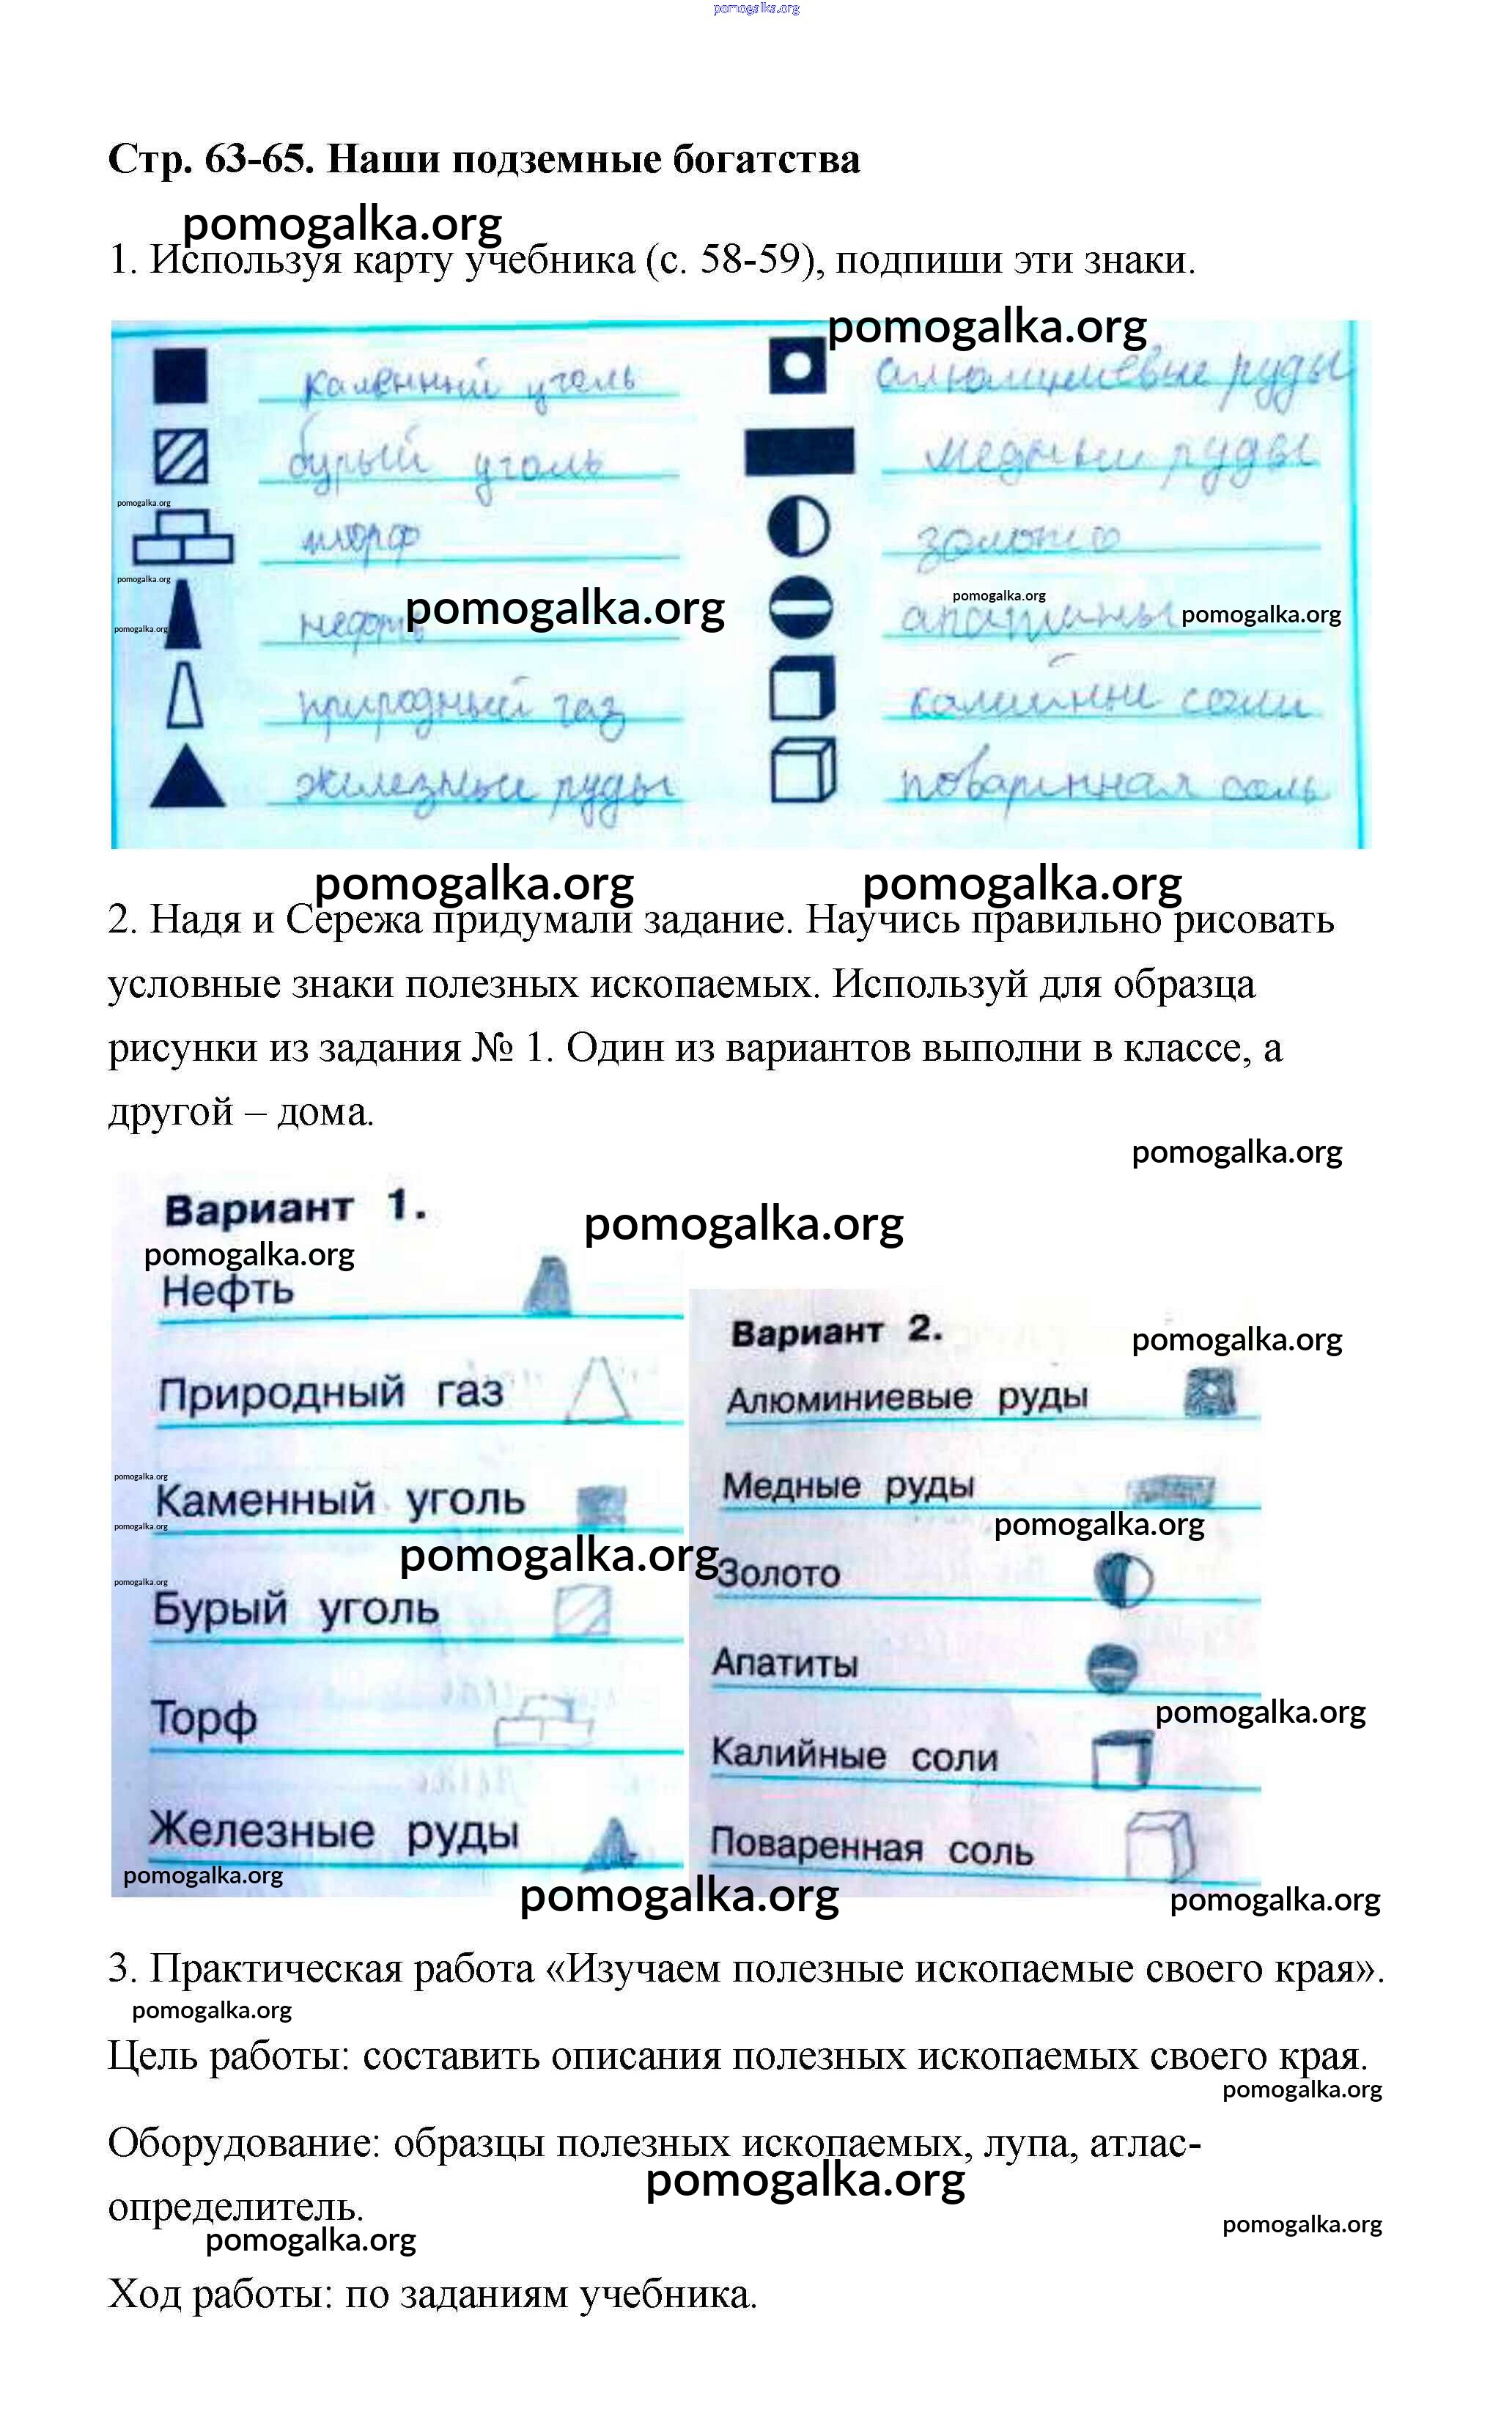 pomogalka.org
Стр. 63-65. Наши подземные богатства
pomogalka.org
1. Используя карту учебника (с. 58-59), подпиши эти знаки.
pomogalka.org
каменный уголь
алюминиевые руды
бурый уголь
медные руды
pomogalka.org
торф
золото
pomogalka.org
pomogalka.org
pomogalka.org
pomogalka.org
pomogalka.org
нефть
апатиты
природный газ
калийные соли
железные руды
поваренная соль
pomogalka.org
pomogalka.org
2. Надя и Сережа придумали задание. Научись правильно рисовать
условные знаки полезных ископаемых. Используй для образца
рисунки из задания № 1. Один из вариантов выполни в классе, а
другой – дома.
pomogalka.org
Вариант 1.
pomogalka.org
pomogalka.org
Нефть
Природный газ
pomogalka.org
Каменный уголь
pomogalka.org
pomogalka.org
pomogalka.org
Бурый уголь
Торф
Железные руды
pomogalka.org
pomogalka.org
Вариант 2.
pomogalka.org
Алюминиевые руды
Медные руды
pomogalka.org
Золото
Апатиты
pomogalka.org
Калийные соли
Поваренная соль
pomogalka.org
3. Практическая работа «Изучаем полезные ископаемые своего края».
pomogalka.org
Цель работы: составить описания полезных ископаемых своего края.
pomogalka.org
Оборудование: образцы полезных ископаемых, лупа, атлас-
pomogalka.org
определитель.
pomogalka.org
pomogalka.org
Ход работы: по заданиям учебника.